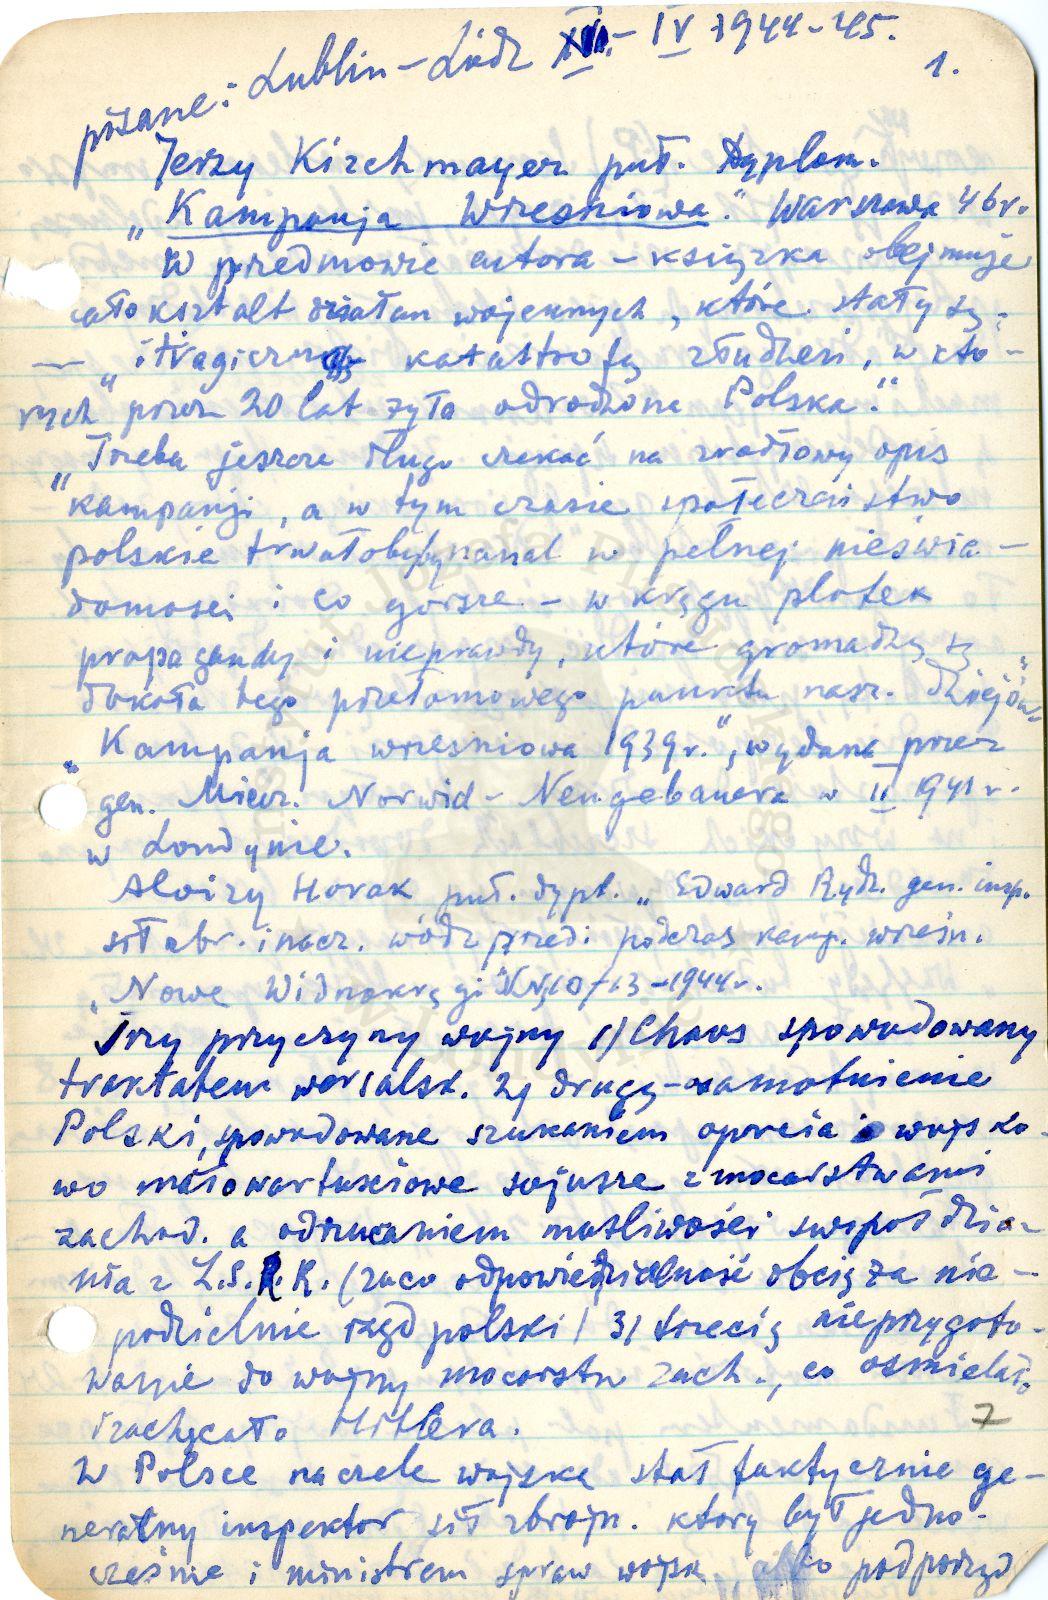 pisane: Lublin – Łódź XII. – IV 1944–45.
1.
Jerzy Kirchmayer puł. Dyplom.
„Kampanja Wrześniowa." Warszawa 46 r.
W przedmowie autora – książka obejmuje
całokształt działań wojennych, które stały są
— „i tragiczną katastrofą złudzeń, w któ–
rych przez 20 lat żyła odrodzona Polska."
„Trzeba jeszcze długo czekać na źródłowy opis
kampanji, a w tym czasie społeczeństwo
polskie trwałoby nanal w pełnej nieświa–
domości i co gorsze – w kręgu plotek
propagandy i nieprawdy, które gromadzą są
dokoła tego przełomowego punktu nasz. dziejów"
„Kampanja wrześniowa 1939 r.", wydana przez
gen. Miecz. Norwid – Neugebauera w II 1941 r.
w Londynie.
Aloizy Horak puł. dypl. „Edward Rydz. gen. insp.
sił zbr. i nacz. wódz przed i podczas kamp. wrześn.
„Nowe Widnokręgi" Nr, 10–13–1944 r.
Trzy przyczyny wojny 1) Chaos spowodowany
traktatem wersalsk. 2) drugą – osamotnienie
Polski, spowodowane szukaniem oparcia o wojsko–
wo małowartościowe sojusze z mocarstwami
zachod. a odrzucaniem możliwości swspółdzia–
nia z Z.S.R.R. (zaco odpowiedzialność obciąża nie–
podzielnie rząd polski) 3) trzecią nieprzygoto–
wanie do wojny mocarstw zach., co ośmielało
i zachęcało Hitlera.
7
W Polsce na czele wojska stał faktycznie ge–
neralny inspektor sił zbrojn. który był jedno–
cześnie i ministrem spraw wojsk, albo podporząd